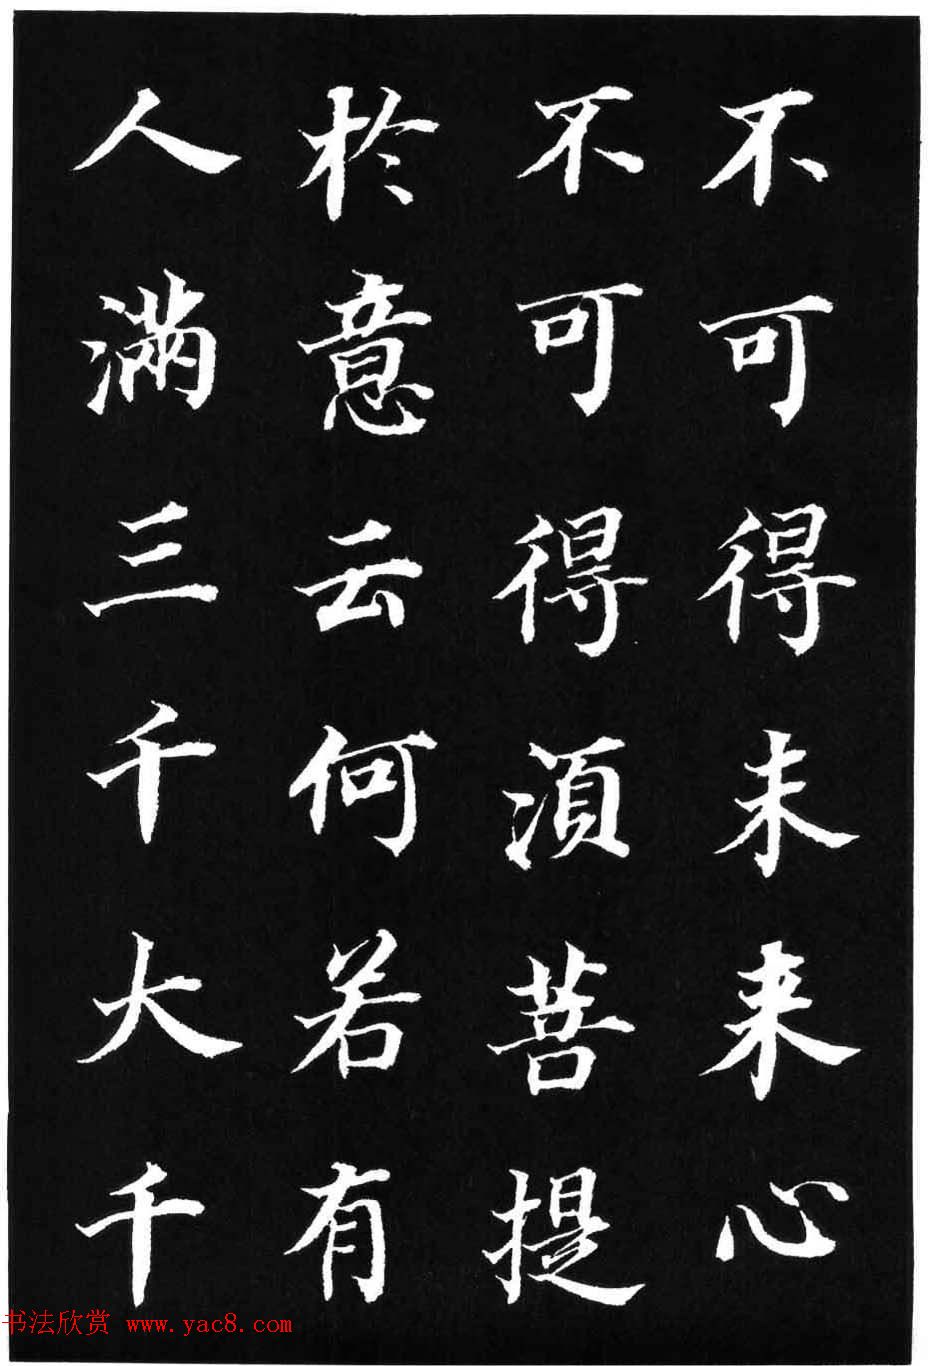 不可得未来心
不可得湏菩提
於意云何若有
人満三千大千
书法欣赏 www.yac8.com